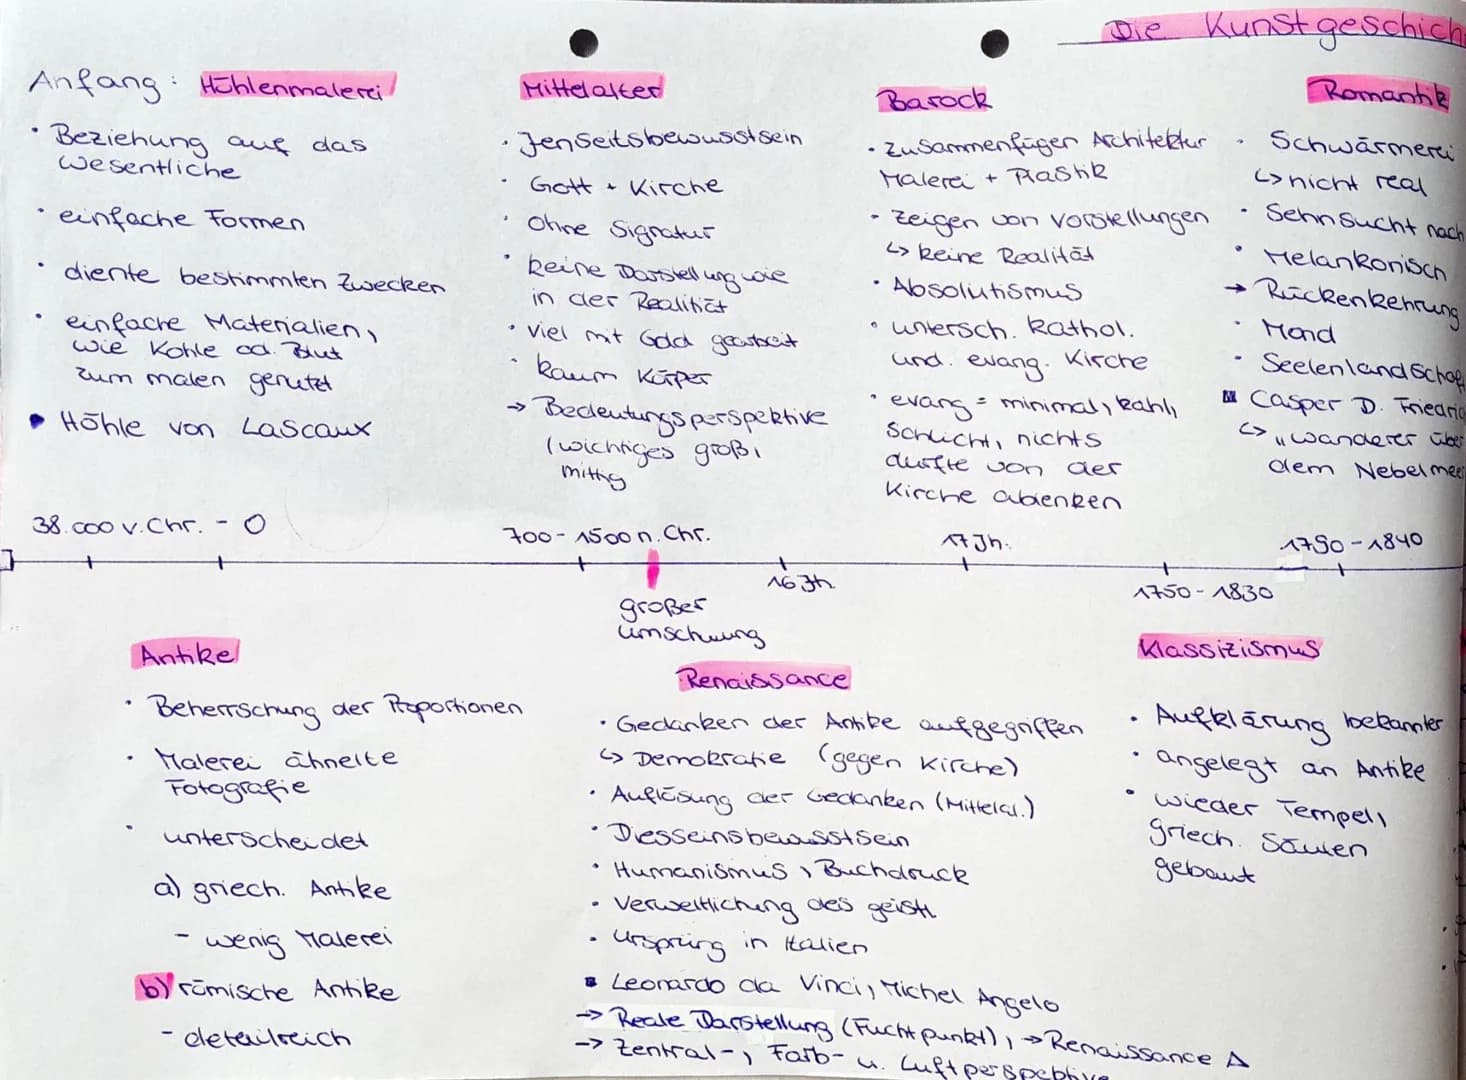 Die Kunstgeschich
Anfang: Höhlenmalerei
• Beziehung auf das
wesentliche
• einfache Formen
• diente bestimmten Zwecken
• einfache Materialien,
wie Kohle od. Blut
zum malen genutzt
• Höhle von Lascaux
38.000 v. Chr. - 0
Mittelalter
• Jenseitsbewusstsein
• Gott + Kirche
• Ohne Signatur
• keine Darstellung wie
in der Realität
• viel mit Gold gearbeit
• kaum Körper
→ Bedeutungsperspektive
(wichtiges groß,
mittig
700 - 1500 n. Chr.
Barock
• zusammenfügen Architektur
Malerei + Plastik
• zeigen von Vorstellungen
↳ keine Realität
• Absolutismus
• untersch. kathol.
und. evang. Kirche
• evang = minimal, kahl,
schlicht, nichts
durfte von der
Kirche ablenken
17 Jh.
Romantik
• Schwärmerei
↳ nicht real
• Sehnsucht nach
• Melankonisch
→ Rückenkehrung
• Mond
• Seelenlandschaf
▪ Casper D. Friedric
↳ „wanderer über
dem Nebelmee
1790 - 1840
großer
umschwung
16 Jh.
1750 - 1830
Antike
• Beherrschung der Proportionen
• Malerei ähnelte
Fotografie
• unterscheidet
a) griech. Antike
- wenig Malerei
b) römische Antike
- deteilreich
Renaissance
• Gedanken der Antike aufgegriffen
↳ Demokratie (gegen Kirche)
• Auflösung der Gedanken (Mittelal.)
• Diesseinsbewusstsein
• Humanismus, Buchdruck
• Verweltlichung des geistl.
• Ursprüng in Italien
▪ Leonardo da Vinci, Michel Angelo
→ Reale Darstellung (Fuchtpunkt), → Renaissance Δ
→ Zentral-, Farb- u. Luftperspektive
Klassizismus
• Aufklärung bekannter
• angelegt an Antike
• wieder Tempel,
griech. Säulen
gebaut